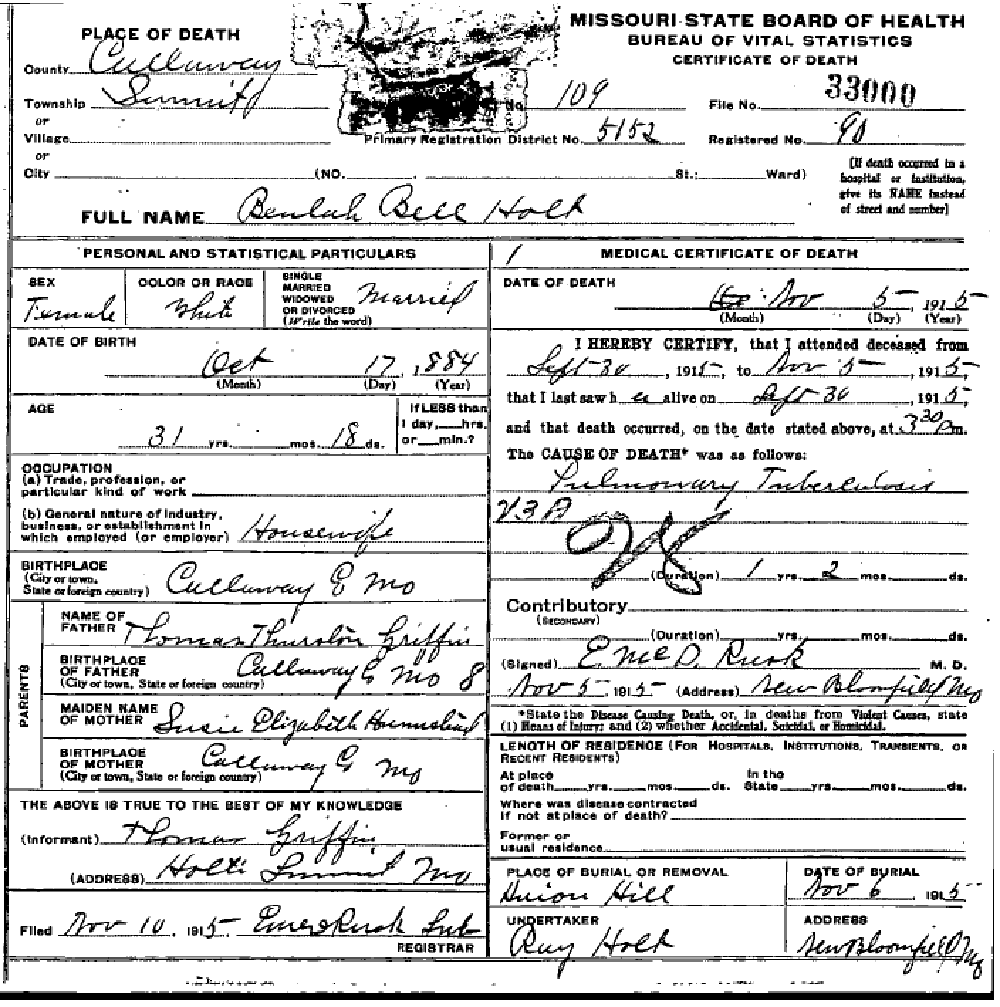 MISSOURI STATE BOARD OF HEALTH
BUREAU OF VITAL STATISTICS
CERTIFICATE OF DEATH
PLACE OF DEATH
County Callaway
Township Summit
or
Village
or
City (NO. St.: Ward)
No. 109
Primary Registration District No. 5152
File No. 33000
Registered No. 90
[If death occurred in a
hospital or institution,
give its NAME instead
of street and number]
FULL NAME Beulah Bell Holt
PERSONAL AND STATISTICAL PARTICULARS
SEX
Female
COLOR OR RACE
White
SINGLE
MARRIED
WIDOWED
OR DIVORCED
(Write the word)
Married
DATE OF BIRTH
Oct 17, 1884
(Month) (Day) (Year)
AGE
31 yrs. mos. 18 ds.
If LESS than
1 day, hrs.
or min.?
OCCUPATION
(a) Trade, profession, or
particular kind of work
(b) General nature of industry,
business, or establishment in
which employed (or employer) Housewife
BIRTHPLACE
(City or town,
State or foreign country) Callaway Co Mo
PARENTS
NAME OF
FATHER Thomas Thurston Griffin
BIRTHPLACE
OF FATHER
(City or town, State or foreign country) Callaway Co Mo 8
MAIDEN NAME
OF MOTHER Susie Elizabeth
BIRTHPLACE
OF MOTHER
(City or town, State or foreign country) Callaway Co Mo
THE ABOVE IS TRUE TO THE BEST OF MY KNOWLEDGE
(Informant) Thomas Griffin
(ADDRESS) Holts Summit Mo
Filed Nov 10, 1915 Sub
REGISTRAR
MEDICAL CERTIFICATE OF DEATH
DATE OF DEATH
Nov 5 1915
(Month) (Day) (Year)
I HEREBY CERTIFY, that I attended deceased from
Sept 30, 1915, to Nov 5, 1915,
that I last saw her alive on Sept 30, 1915,
and that death occurred, on the date stated above, at 3 30 Pm.
The CAUSE OF DEATH* was as follows:
Pulmonary Tuberculosis
23A
(Duration) 1 yrs. 2 mos. ds.
Contributory
(SECONDARY)
(Duration) yrs. mos. ds.
(Signed) E. McD. Rusk M. D.
Nov 5 1915 (Address) New Bloomfield Mo
*State the Disease Causing Death, or, in deaths from Violent Causes, state
(1) Means of Injury; and (2) whether Accidental, Suicidal, or Homicidal.
LENGTH OF RESIDENCE (FOR HOSPITALS, INSTITUTIONS, TRANSIENTS, OR
RECENT RESIDENTS)
At place
of death yrs. mos. ds.
In the
State yrs. mos. ds.
Where was disease contracted
if not at place of death?
Former or
usual residence
PLACE OF BURIAL OR REMOVAL
Union Hill
DATE OF BURIAL
Nov 6 1915
UNDERTAKER
Ray Holt
ADDRESS
New Bloomfield Mo